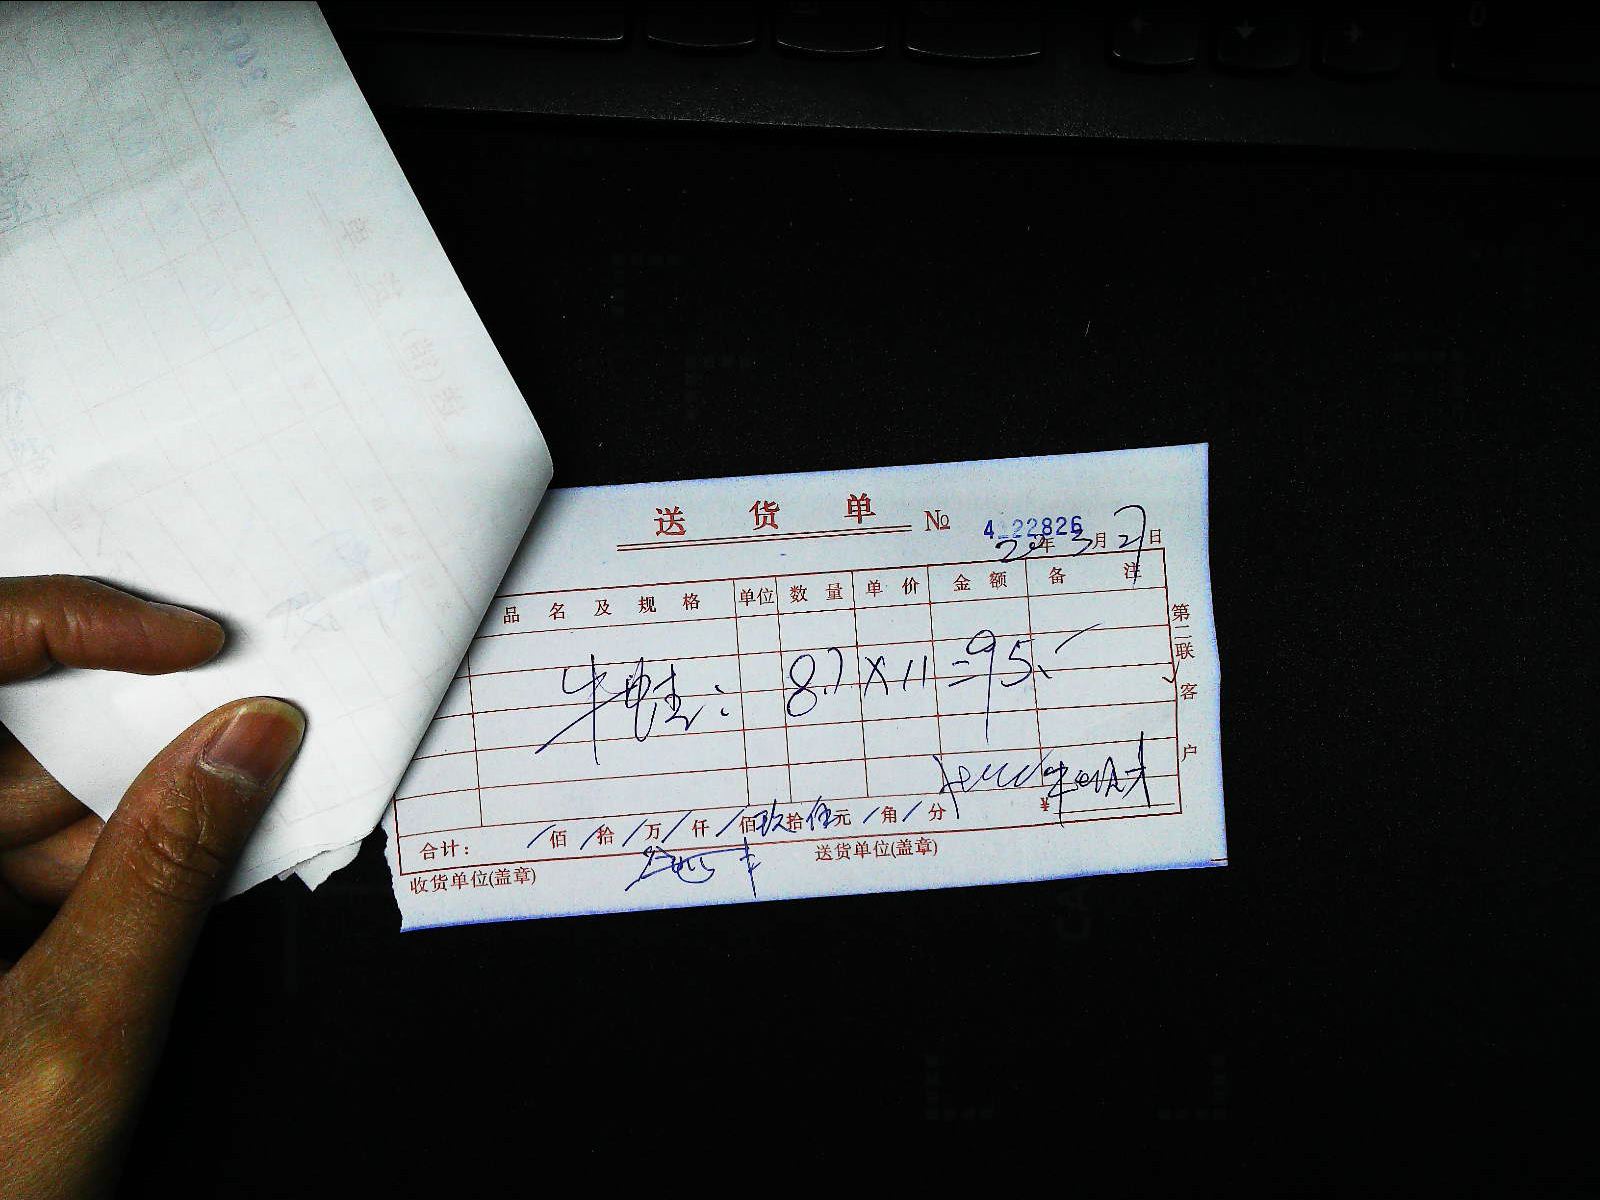 送货单 № 4 22826
年 3 月 27 日
品名及规格 单位 数量 单价 金额 备注
牛蛙: 8.7 × 11 = 95.
合计: / 佰 / 拾 / 万 / 仟 / 佰 玖 拾 伍 元 / 角 / 分 ¥
收货单位(盖章) 送货单位(盖章)
第二联 客户